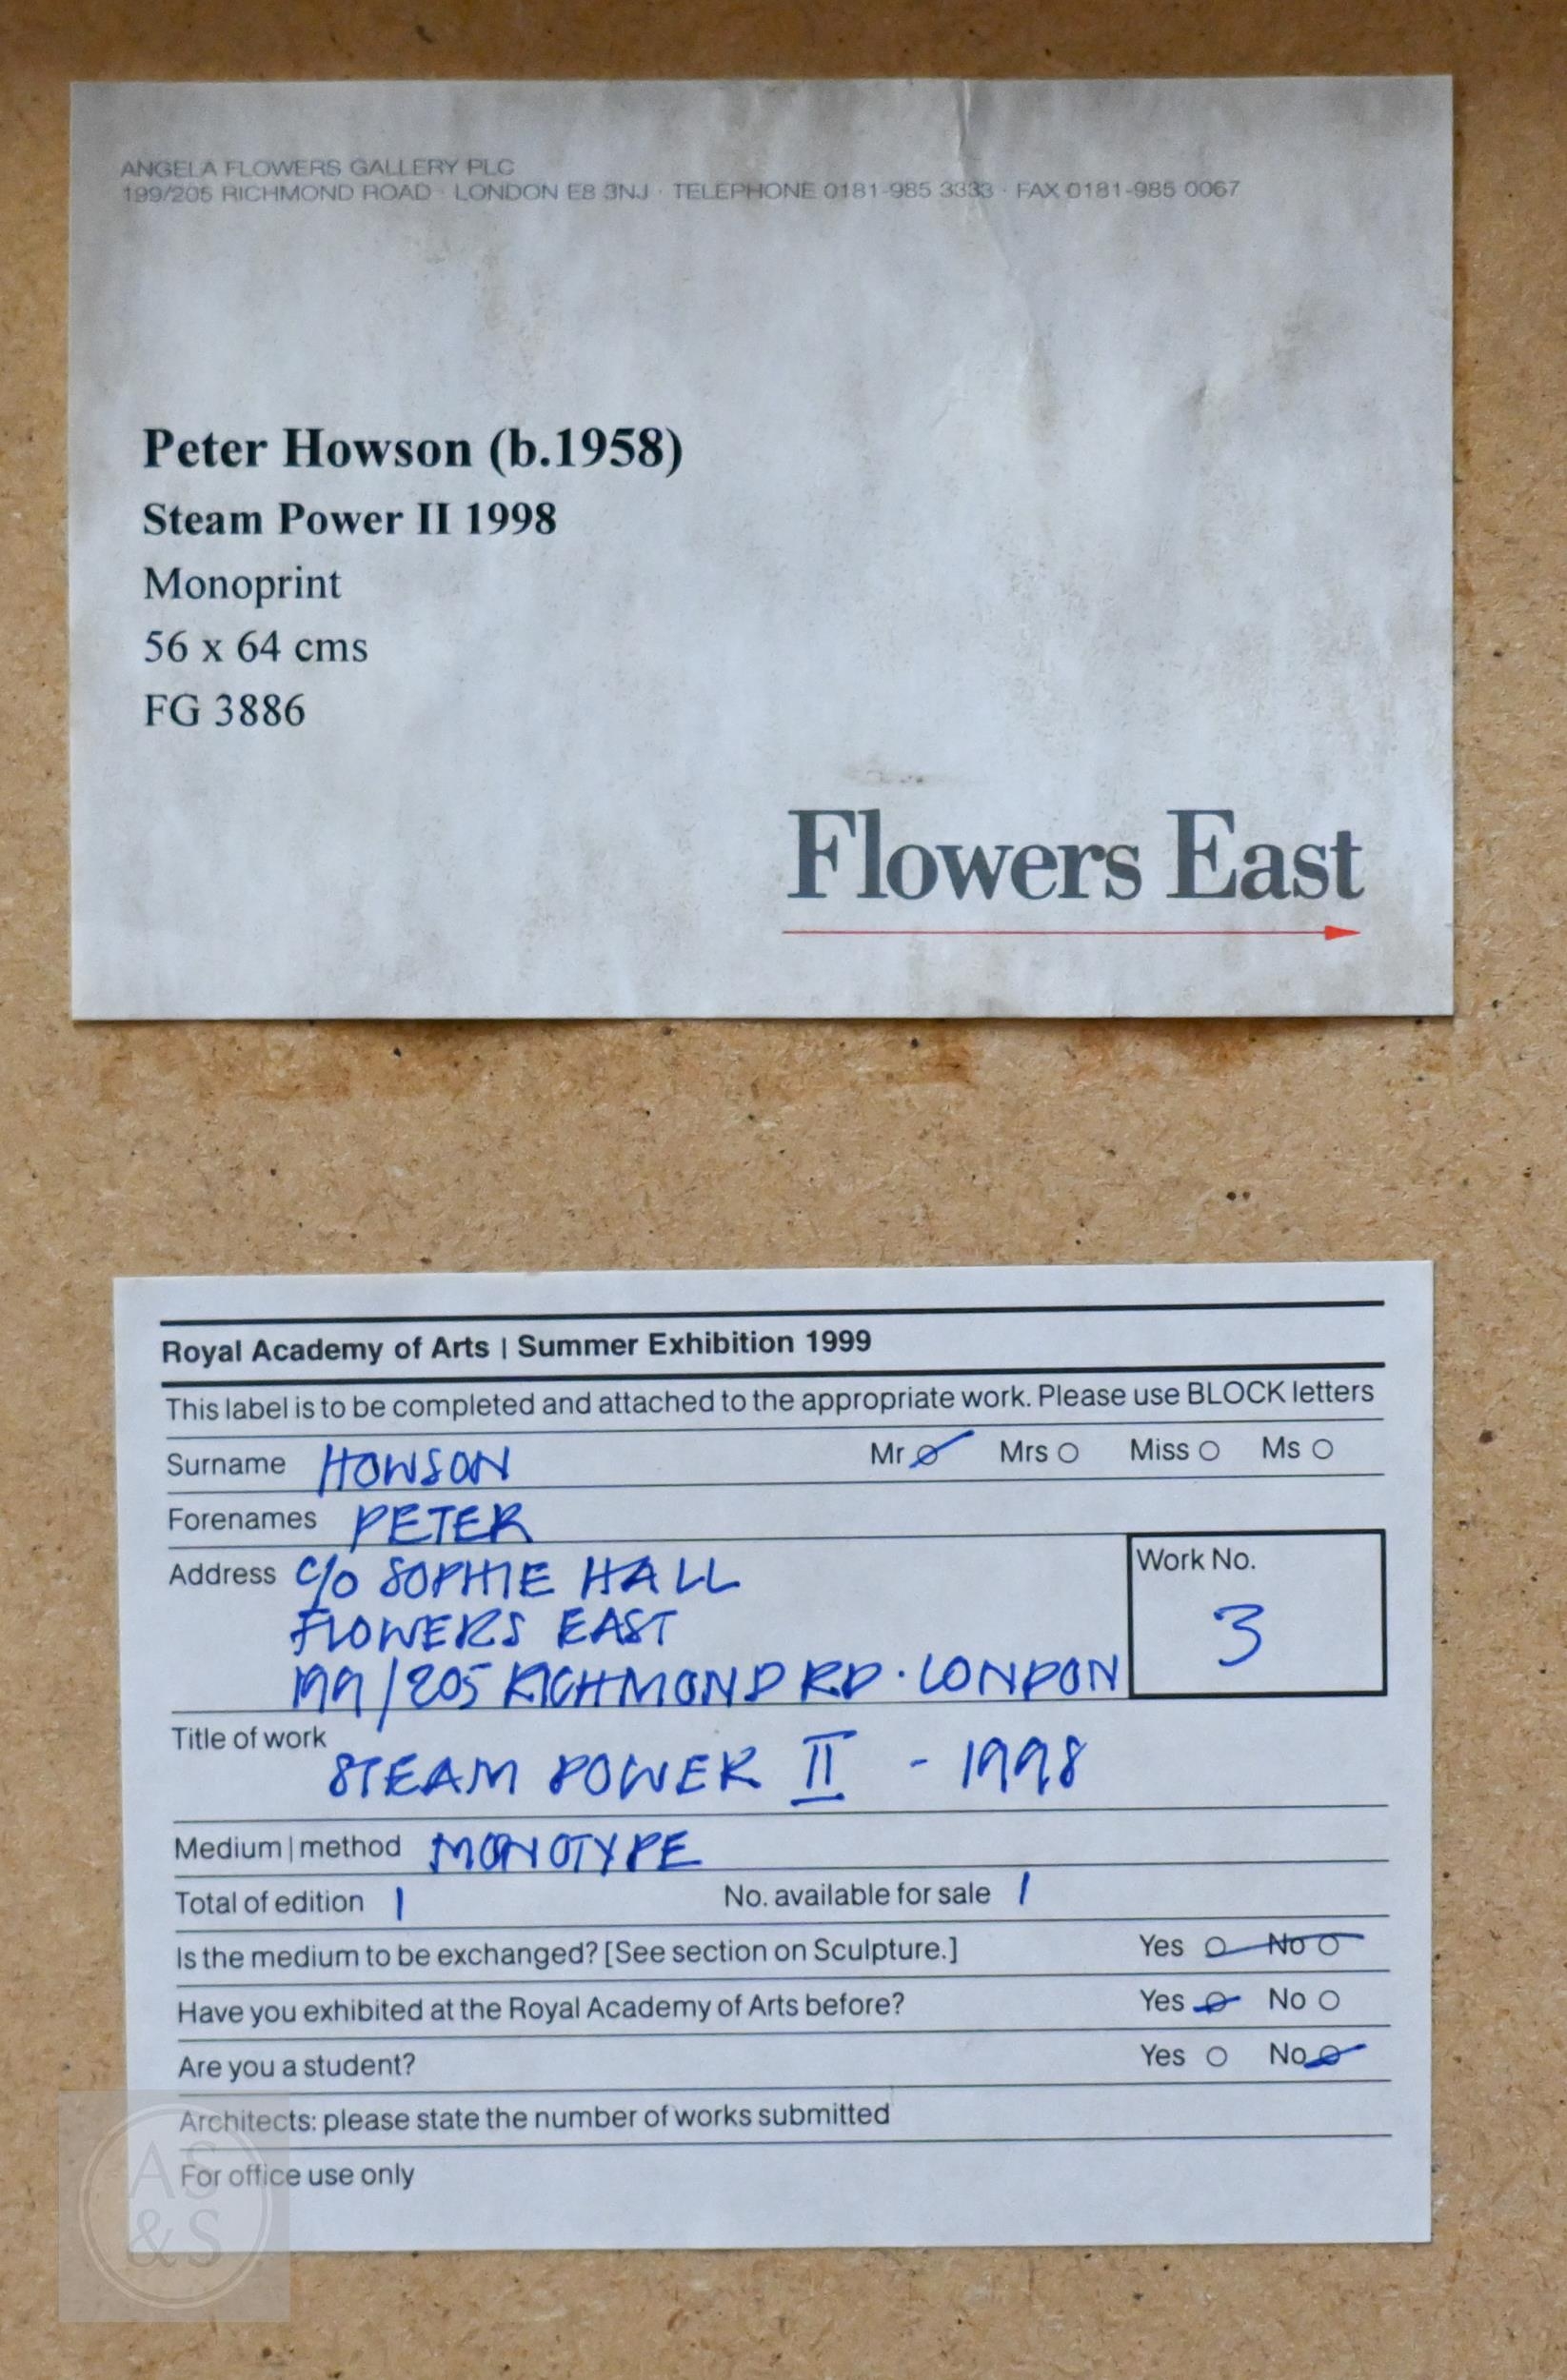 ANGELA FLOWERS GALLERY PLC
199/205 RICHMOND ROAD · LONDON E8 3NJ · TELEPHONE 0181-985 3333 · FAX 0181-985 0067
Peter Howson (b.1958)
Steam Power II 1998
Monoprint
56 x 64 cms
FG 3886
Flowers East
Royal Academy of Arts | Summer Exhibition 1999
This label is to be completed and attached to the appropriate work. Please use BLOCK letters
Surname HOWSON Mr Mrs Miss Ms
Forenames PETER
Address C/O SOPHIE HALL
FLOWERS EAST
199/205 RICHMOND RD · LONDON
Work No.
3
Title of work
STEAM POWER II - 1998
Medium | method MONOTYPE
Total of edition 1 No. available for sale 1
Is the medium to be exchanged? [See section on Sculpture.] Yes No
Have you exhibited at the Royal Academy of Arts before? Yes No
Are you a student? Yes No
Architects: please state the number of works submitted
For office use only
AS
&S